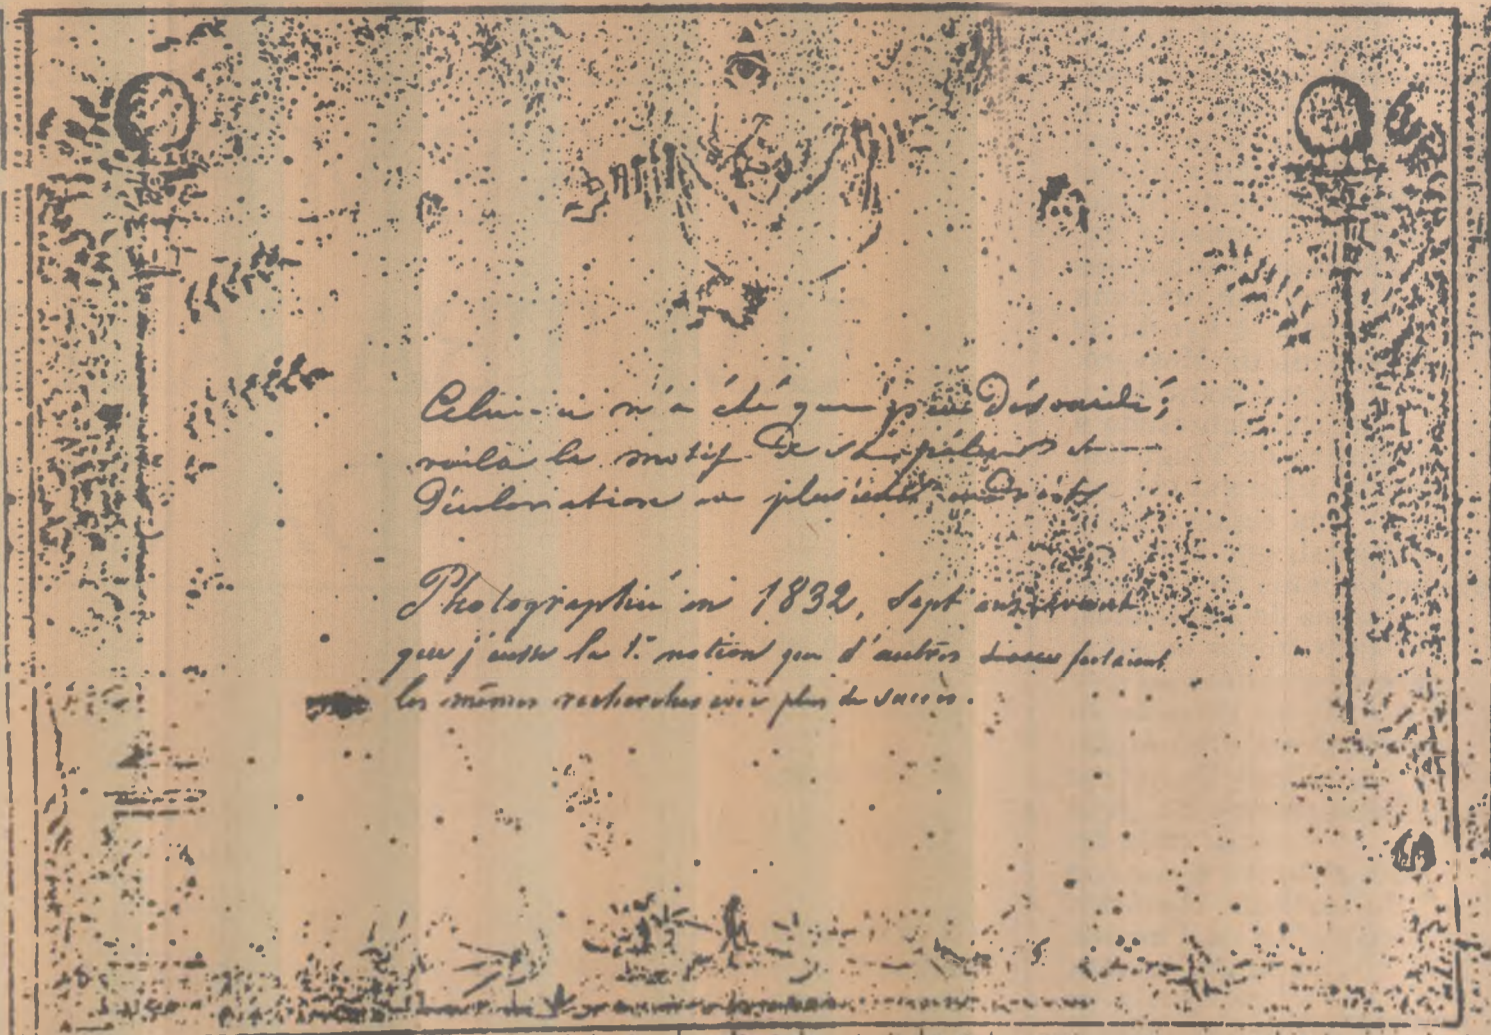 Celui-ci n'a été que peu
voilà le motif de sa pâleur et
Décoloration en plusieurs endroits
Photographié en 1832, sept ans avant
que j'eusse la 1e notion que d'autres faisaient
les mêmes recherches avec plus de succès.